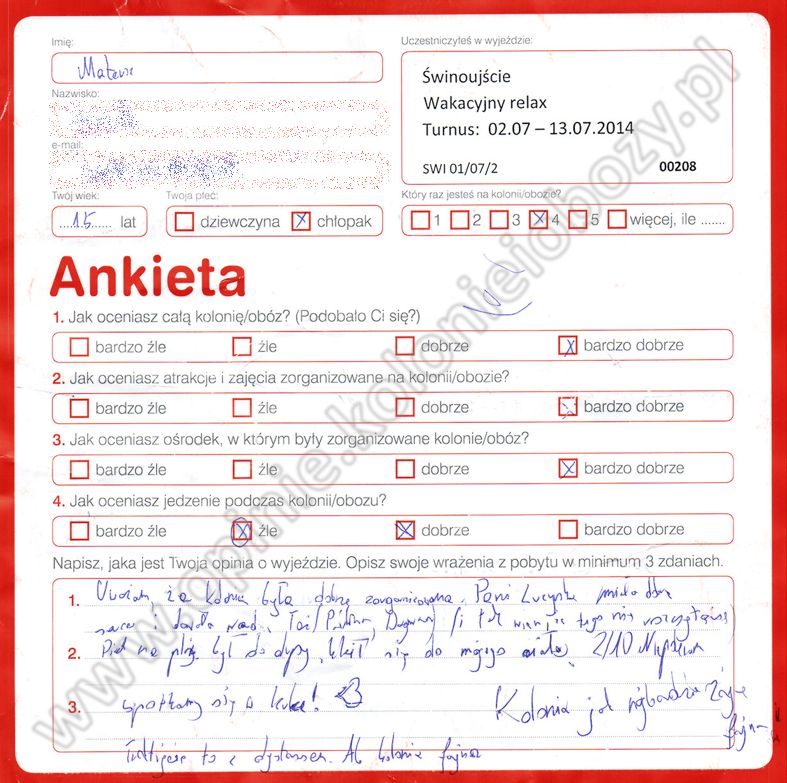 Imię:
Mateusz
Nazwisko:
e-mail:
Twój wiek:
15 lat
Twoja płeć:
dziewczyna chłopak
Uczestniczyłeś w wyjeździe:
Świnoujście
Wakacyjny relax
Turnus: 02.07 – 13.07.2014
SWI 01/07/2 00208
Który raz jesteś na kolonii/obozie?
1 2 3 4 5 więcej, ile .......
Ankieta
1. Jak oceniasz całą kolonię/obóz? (Podobało Ci się?)
bardzo źle źle dobrze bardzo dobrze
2. Jak oceniasz atrakcje i zajęcia zorganizowane na kolonii/obozie?
bardzo źle źle dobrze bardzo dobrze
3. Jak oceniasz ośrodek, w którym były zorganizowane kolonie/obóz?
bardzo źle źle dobrze bardzo dobrze
4. Jak oceniasz jedzenie podczas kolonii/obozu?
bardzo źle źle dobrze bardzo dobrze
Napisz, jaka jest Twoja opinia o wyjeździe. Opisz swoje wrażenia z pobytu w minimum 3 zdaniach.
1. Uważam, że kolonia była dobrze zorganizowana. Pani Lucynka miała dobre
serce i (i tak wiem, że tego nie
2. na plaży był do dupy, kleił się do mojego ciała, 2/10
3. spotkamy się o <3 Kolonia jest
fajna
to z dystansem. Ale kolonia fajna
www.opinie.kolonieiobozy.pl